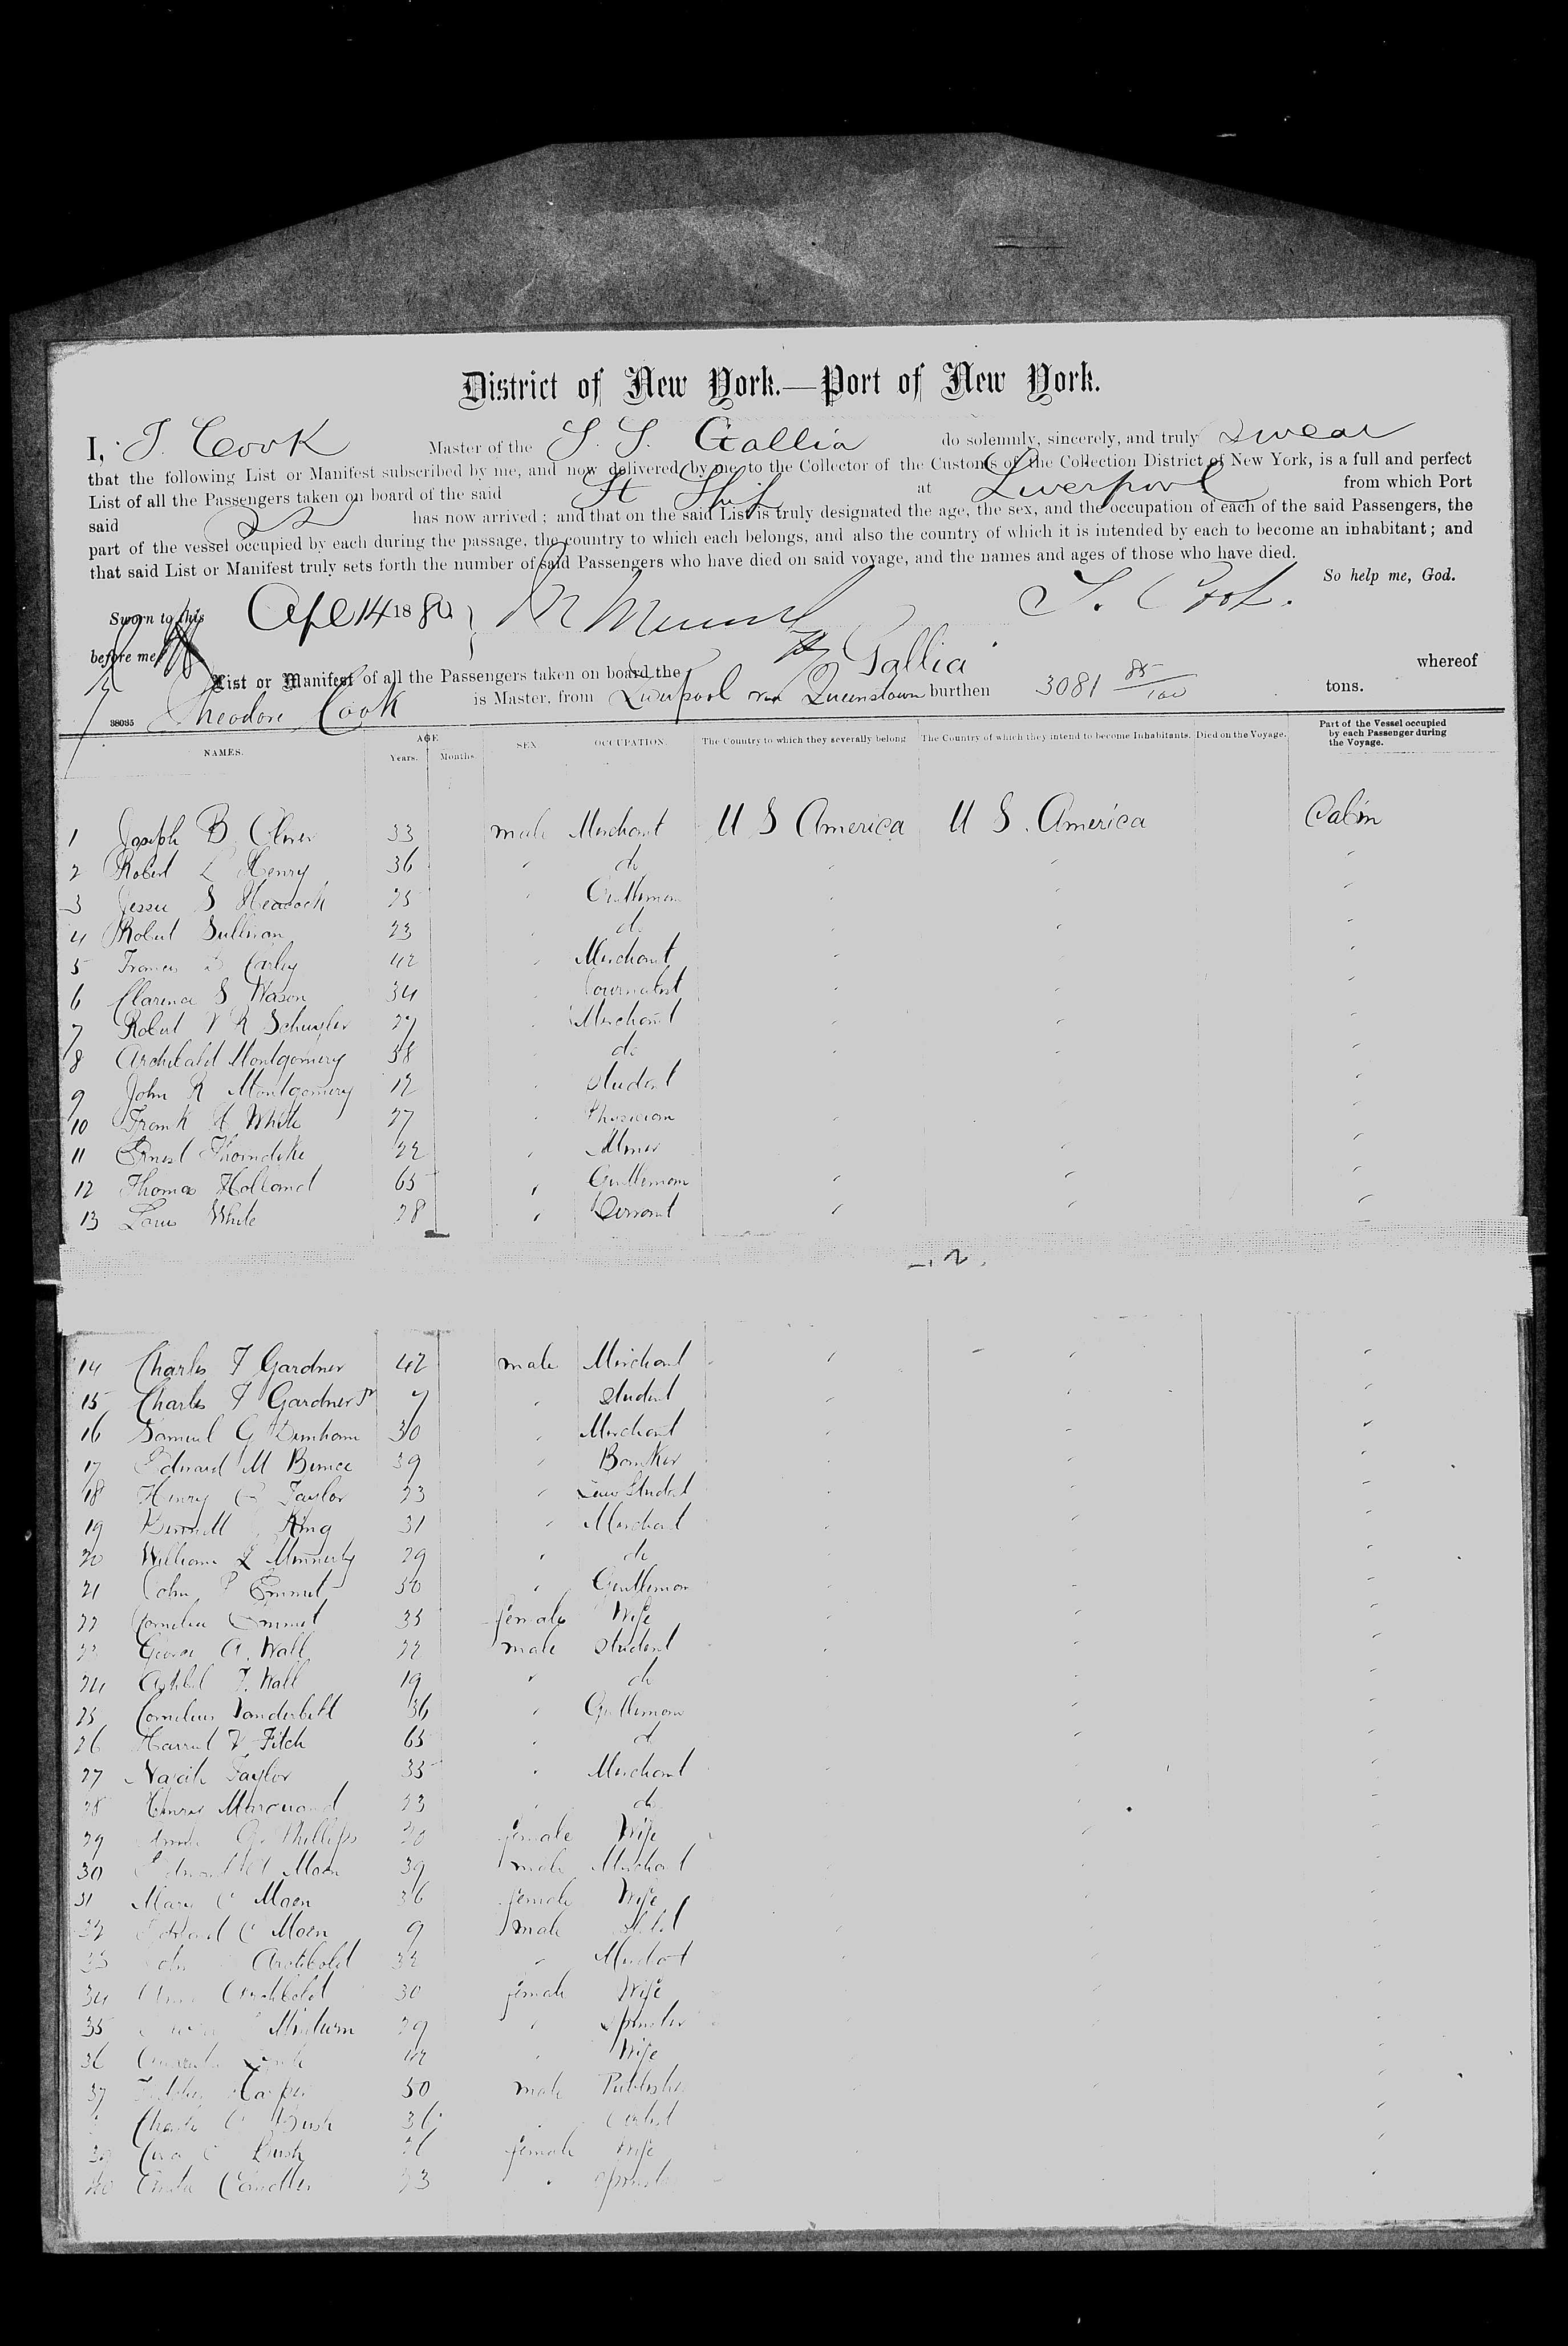 District of New York.—Port of New York.
I, T. Cook Master of the S. S. Gallia do solemnly, sincerely, and truly swear
that the following List or Manifest subscribed by me, and now delivered by me to the Collector of the Customs of the Collection District of New York, is a full and perfect
List of all the Passengers taken on board of the said St Ship at Liverpool from which Port
said SS has now arrived; and that on the said List is truly designated the age, the sex, and the occupation of each of the said Passengers, the
part of the vessel occupied by each during the passage, the country to which each belongs, and also the country of which it is intended by each to become an inhabitant; and
that said List or Manifest truly sets forth the number of said Passengers who have died on said voyage, and the names and ages of those who have died.
So help me, God.
Sworn to this Apl 14 1880 T. Cook.
before me
List or Manifest of all the Passengers taken on board the Gallia whereof
38035 Theodore Cook is Master, from Liverpool Queenstown burthen 3081 85/100 tons.
NAMES. AGE Years. Months. SEX OCCUPATION. The Country to which they severally belong. The Country of which they intend to become Inhabitants. Died on the Voyage. Part of the Vessel occupied by each Passenger during the Voyage.
1 Joseph B 33 male Merchant U S America U S. America Cabin
2 Robert L Henry 36 " do
3 Jessie S Heacock 25 " Gentleman
4 Robert Sullivan 23 " do
5 Francis Carley 42 " Merchant
6 Clarence S Wason 34 " Journalist
7 Robert V R Schuyler 27 " Merchant
8 Archibald Montgomery 38 " do
9 John R Montgomery 12 " Student
10 Frank H White 27 " Physician
11 Ernest Thorndike 22 "
12 Thomas Holland 65 " Gentleman
13 Louis White 28 " Servant
14 Charles F Gardner 42 male Merchant
15 Charles F Gardner Jr 7 " Student
16 Samuel G Dunham 30 " Merchant
17 Edward M Bunce 39 " Banker
18 Henry C Taylor 23 " Law Student
19 King 31 " Merchant
20 William L 29 " do
21 John P Emmet 50 " Gentleman
22 Cornelia Emmet 35 female Wife
23 George A. Wall 22 male Student
24 Ashbel T. Wall 19 " do
25 Cornelius Vanderbilt 36 " Gentleman
26 Fitch 65 " do
27 Najeib Taylor 35 " Merchant
28 Henry Marquand 23 " do
29 G Phillips 30 female Wife
30 Moen 39 male Merchant
31 Mary C Moen 36 female Wife
32 C Moen 9 male
33 Archbold 32 "
34 Archbold 30 female Wife
35 Minturn 29 " Spinster
36 " Wife
37 Harper 50 male Publisher
Charles C Bush 36 " Artist
39 C Bush 26 female Wife
40 23 " Spinster